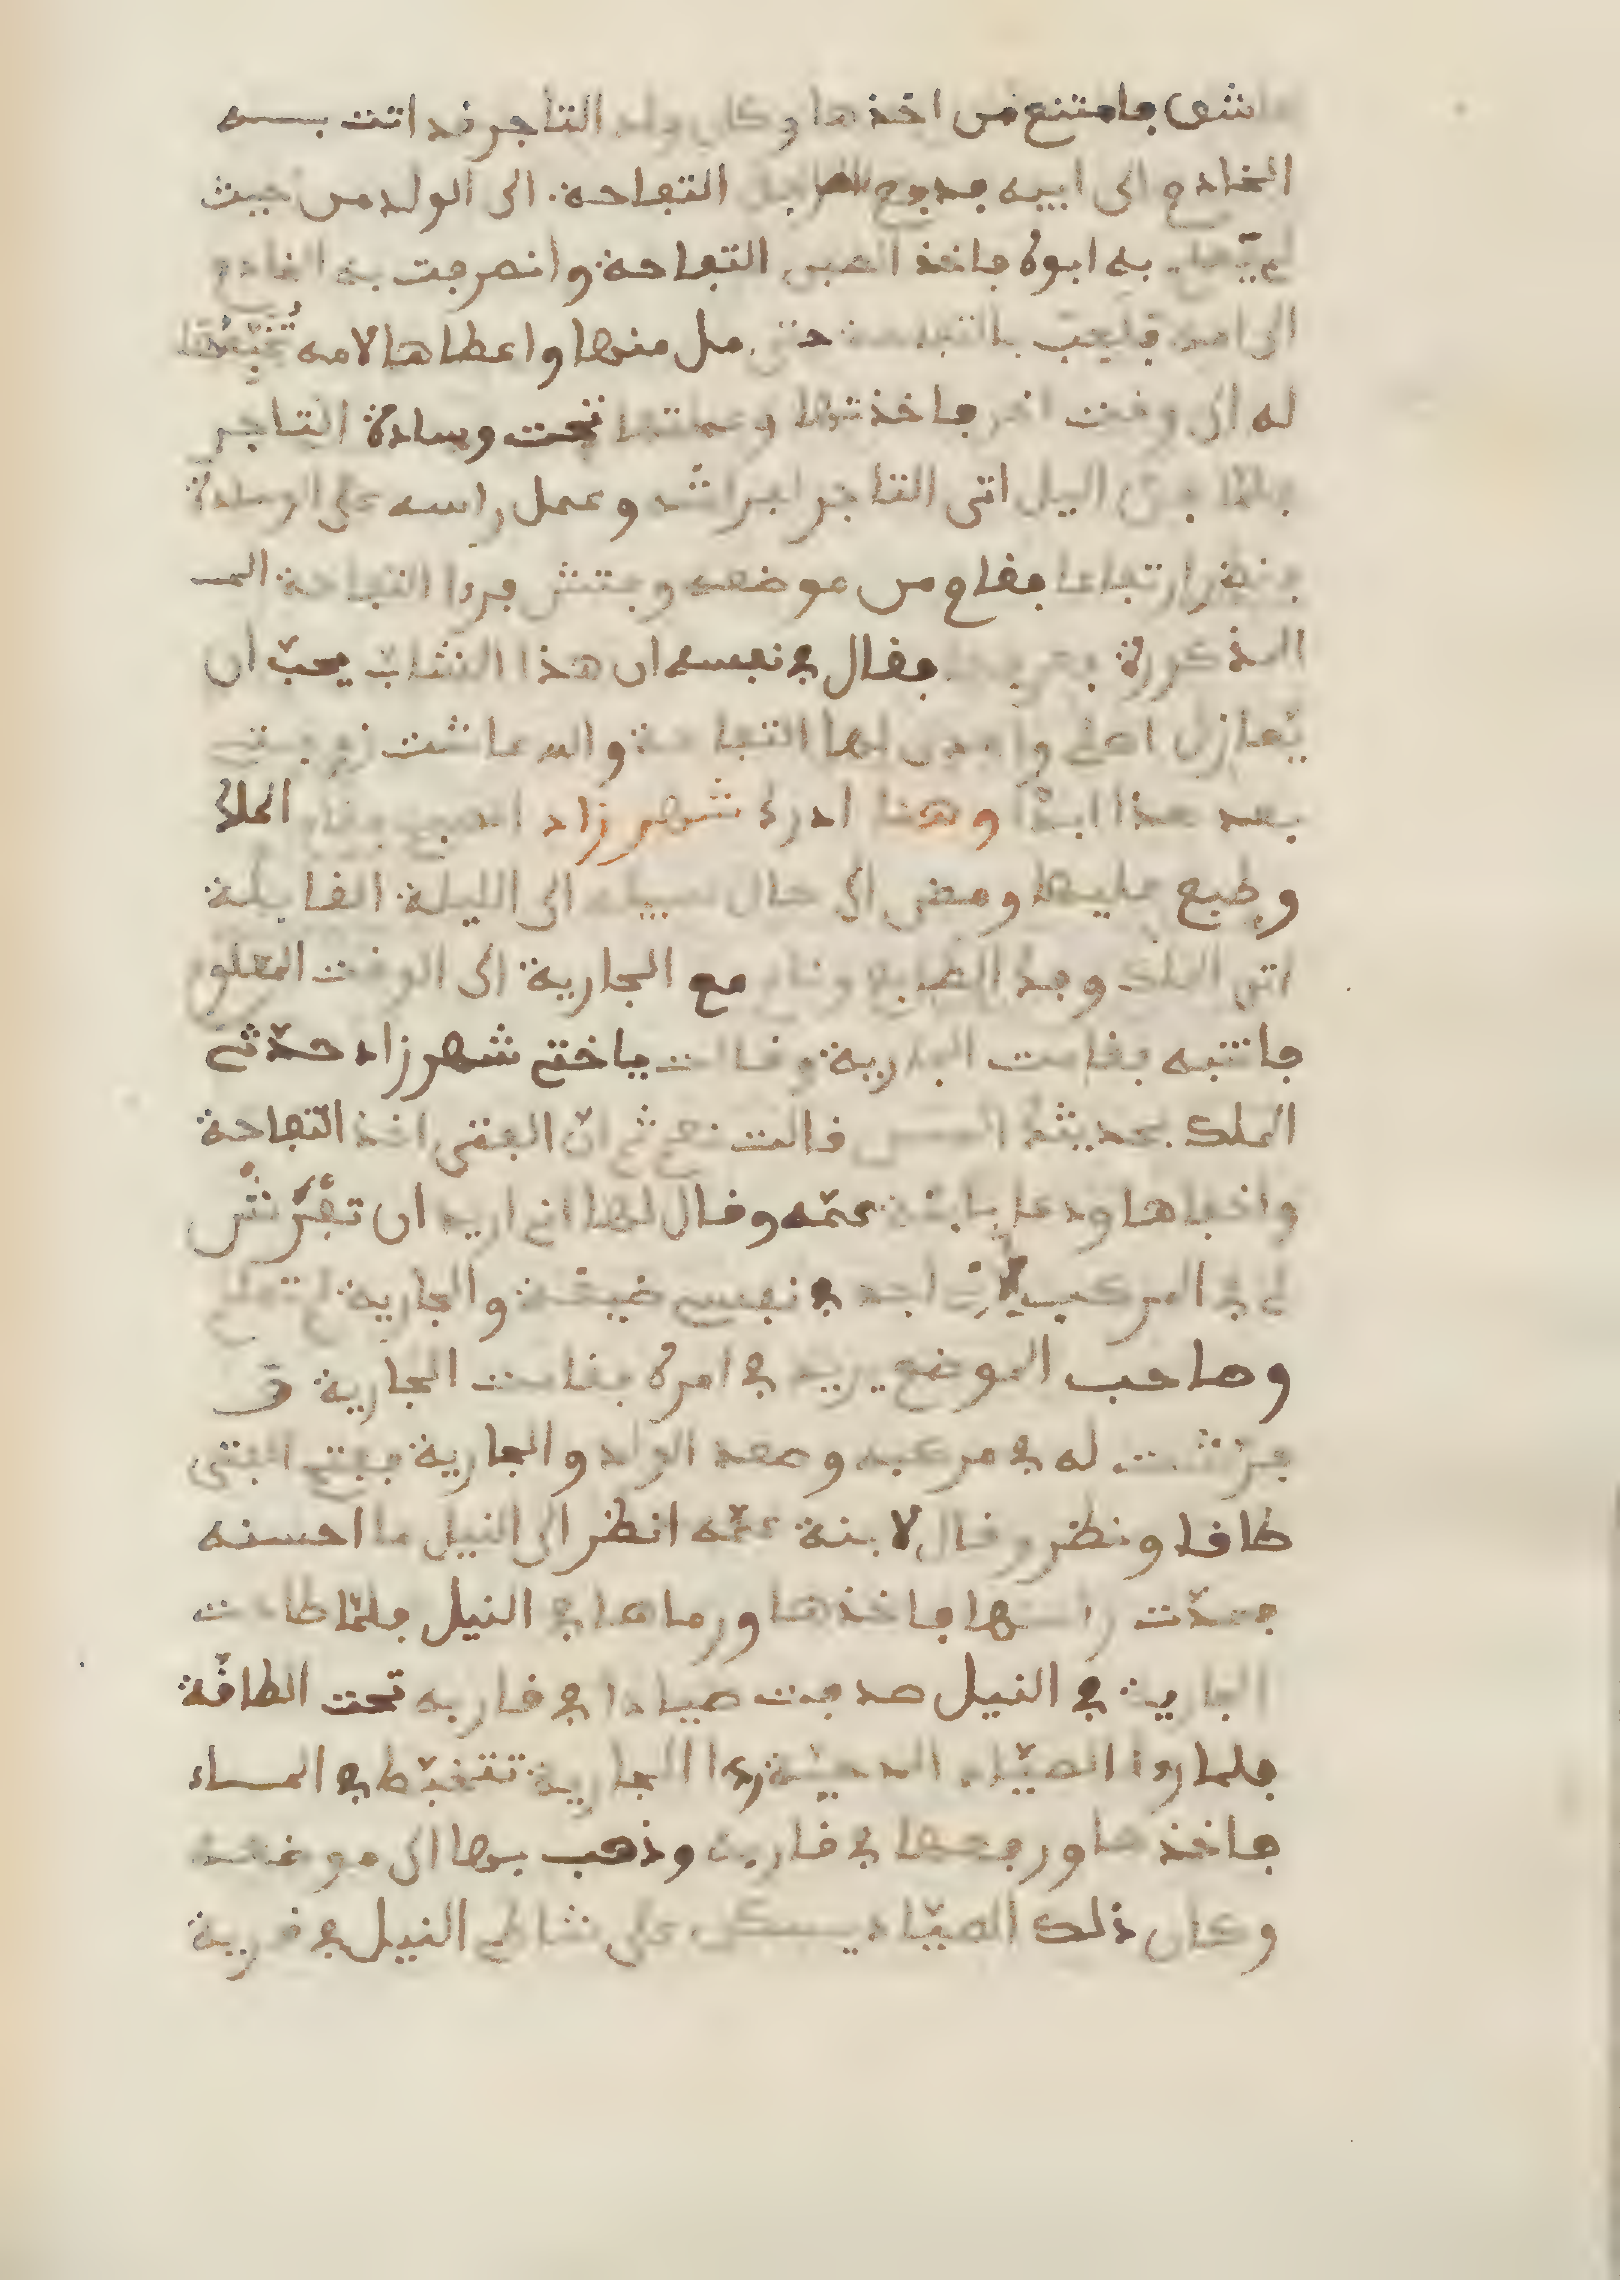 عاشق فامتنع من اخذها وكان ولد التاجر قد اتت بـــه
الخادم الى ابيه فدفع الرجل التفاحة الى الولد من حيث
لم يعلم به ابوه فاخذ الصبي التفاحة وانصرفت به الخادم
الى امه فلعب بالتفاحة حتى مل منها واعطاها لامه تخبيها
له الى وقت اخر فاخذتها وعملتها تحت وسادة التاجر
فلما جنّ اليل اتى التاجر لفراشه وعمل راسه على الوسادة
فنظر ارتفاعا فقام من موضعه وفتش فرءا التفاحة المـــ
المذكورة فعرفها فقال في نفسه ان هذا الشابّ يحبّ ان
يّغازل اهلي واهدى لها التفاحة والله عاشت زوجتي
بعد هذا ابدًا وهنا ادرك شهرزاد الصبح فقام الملك
وطبع عليها ومضى الى حال سبيله الى الليلة القابلة
اتى الملك وفك الطابع ونام مع الجارية الى الوقت المعلوم
فانتبه فقامت الجارية وقالت ياختي شهرزاد حدّثي
الملك بحديثك الحسن قالت نعم ثم انّ الفتى اخذ التفاحة
واخفاها ودعا بابنة عمّه وقال لها اني اريد ان تفرّش
لي في المركب لاني اجد في نفسي ضيقة والجارية لم تعلم
وصاحب الموضع يريد في امره فقامت الجارية و
فرّشت له في مركبه وصعد الولد والجارية ففتح الفتى
طاقا ونظر وقال لابنة عمّه انظر الى النيل ما احسنه
فمدّت راسها فاخذها ورماها في النيل فلمّا طاحت
الجارية في النيل صدفت صيادا في قاربه تحت الطاقة
فلما روا الصيّاد الجارية تتخبّط في المـــاء
فاخذها ورفعها في قاربه وذهب بها الى موضعه
وكان ذلك الصيّاد يسكن على شاطي النيل في قرية